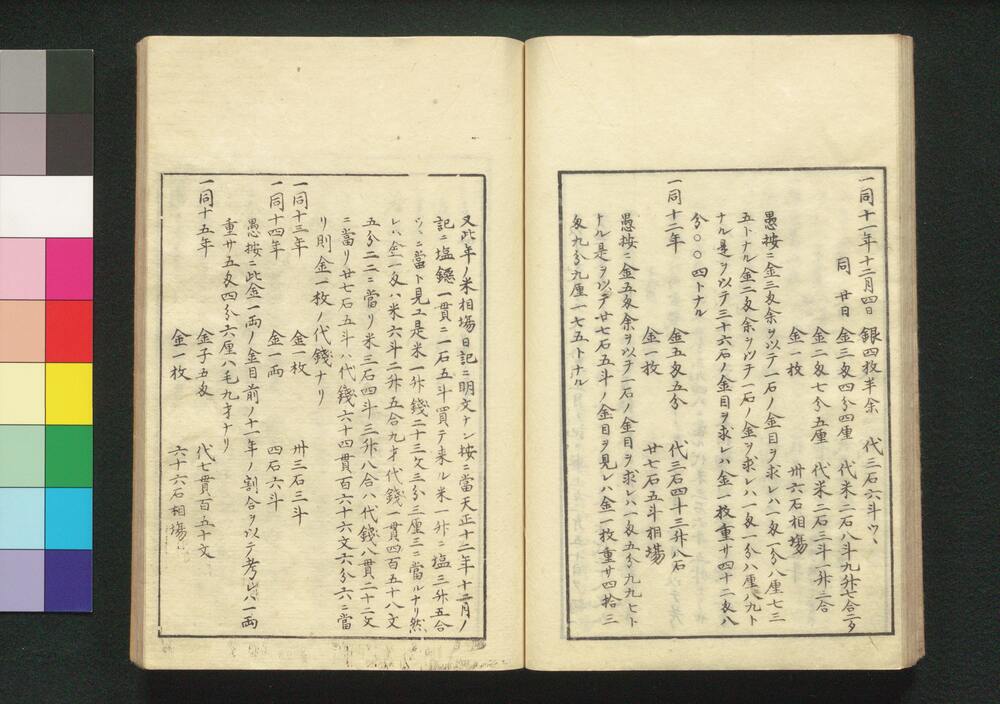 一同十一年十二月四日 銀四枚半余 代三石六斗ツヽ
同 廿日 金三匁四分四厘 代米二石八斗九升七合二夕
金二匁七分五厘 代米二石三斗一升三合
金一枚 卅六石相場
愚按ニ金三匁余ヲ以テ一石ノ金目ヲ求レハ一匁一分八厘七三
五トナル金二匁余ヲ以テ一石ノ金ヲ求レハ一匁一分八厘八九ト
ナル是ヲ以テ三十六石ノ金目ヲ求レハ金一枚重サ四十二匁八
分〇〇四トナル
一同十二年 金五匁五分 代三石四斗三升八石
金一枚 廿七石五斗相場
愚按ニ金五匁余ヲ以テ一石ノ金目ヲ求レハ一匁五分九九七ト
トル是ヲ以テ廿七石五斗ノ金目ヲ見レハ金一枚重サ四拾三
匁九分九厘一七五トナル
又此年ノ米相場日記ニ明文ナシ按ニ當天正十二年十二月ノ
記ニ塩鱈一貫二一石五斗買テ来ル米一升ニ塩三升五合
ツヽニ當ト見エ是米一升錢二十三文三分三厘三ニ當ルナリ然
レハ金一匁ハ米六斗二升五合九才代錢一貫四百五十八文
五分二二ニ當リ米三石四斗三升八合ハ代錢八貫二十二文
ニ當リ廿七石五斗ハ代錢六十四貫百六十六文六分六ニ當
リ則金一枚ノ代錢ナリ
一同十三年 金一枚 卅三石三斗
一同十四年 金一両 四石六斗
愚按ニ此金一両ノ金目前ノ十一年ノ割合ヲ以テ考レハ一両
重サ五匁四分六厘八毛九才ナリ
一同十五年 金子五匁 代七貫百五十文
金一枚 六十六石相場